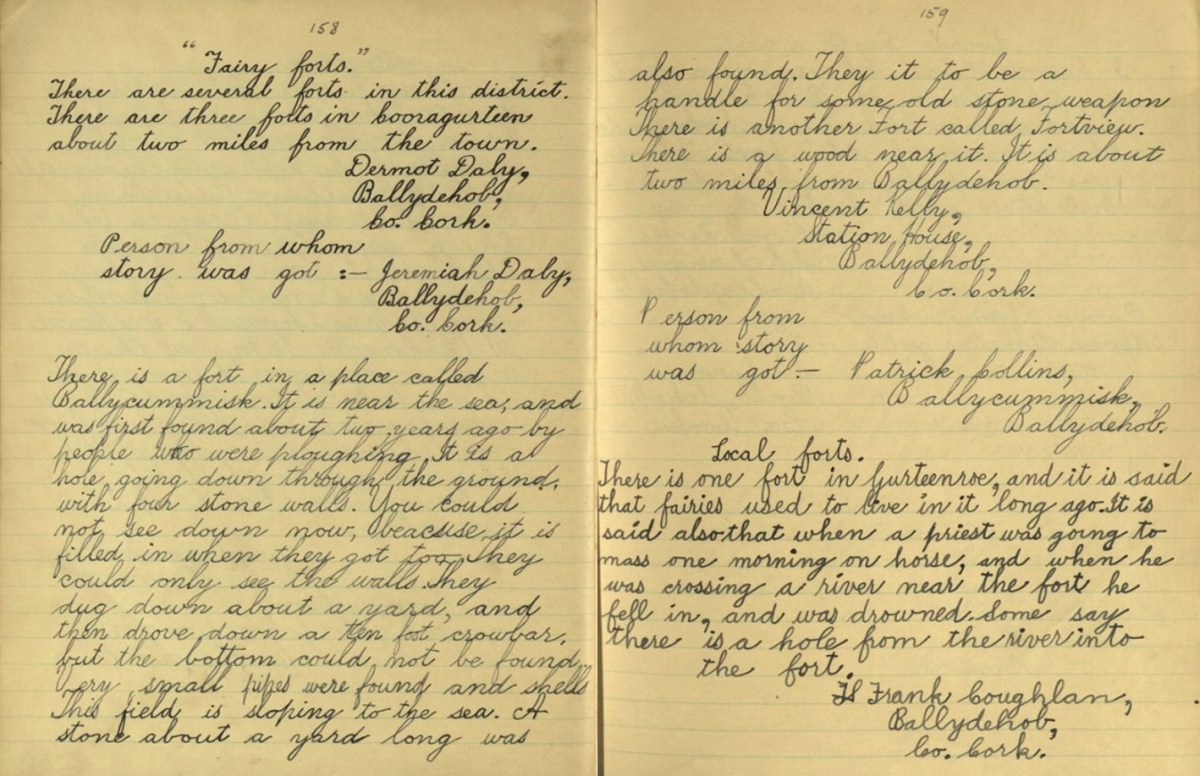 158
"Fairy forts."
There are several forts in this district.
There are three forts in Cooragurteen
about two miles from the town.
Dermot Daly,
Ballydehob,
Co. Cork.
Person from whom
story was got :- Jeremiah Daly,
Ballydehob,
Co. Cork.
There is a fort in a place called
Ballycummisk. It is near the sea, and
was first found about two years ago by
people who were ploughing. It is a
hole going down through the ground,
with four stone walls. You could
not see down now, beacsuse it is
filled in when they got too They
could only see the walls. They
dug down about a yard, and
then drove down a ten foot crowbar,
but the bottom could not be found.
ery small pipes were found and shells
This field is sloping to the sea. A
stone about a yard long was
159
also found. They it to be a
handle for some old stone weapon
There is another Fort called Fortview.
There is a wood near it. It is about
two miles from Ballydehob.
Vincent Kelly,
Station House,
Ballydehob,
Co. Cork.
Person from
whom story
was got - Patrick Collins,
Ballycummisk,
Ballydehob.
Local forts.
There is one fort in Gurteenroe, and it is said
that fairies used to live in it long ago. It is
said also that when a priest was going to
mass one morning on horse, and when he
was crossing a river near the fort he
fell in, and was drowned. Some say
there is a hole from the river into
the fort.
Frank Coughlan,
Ballydehob,
Co. Cork.